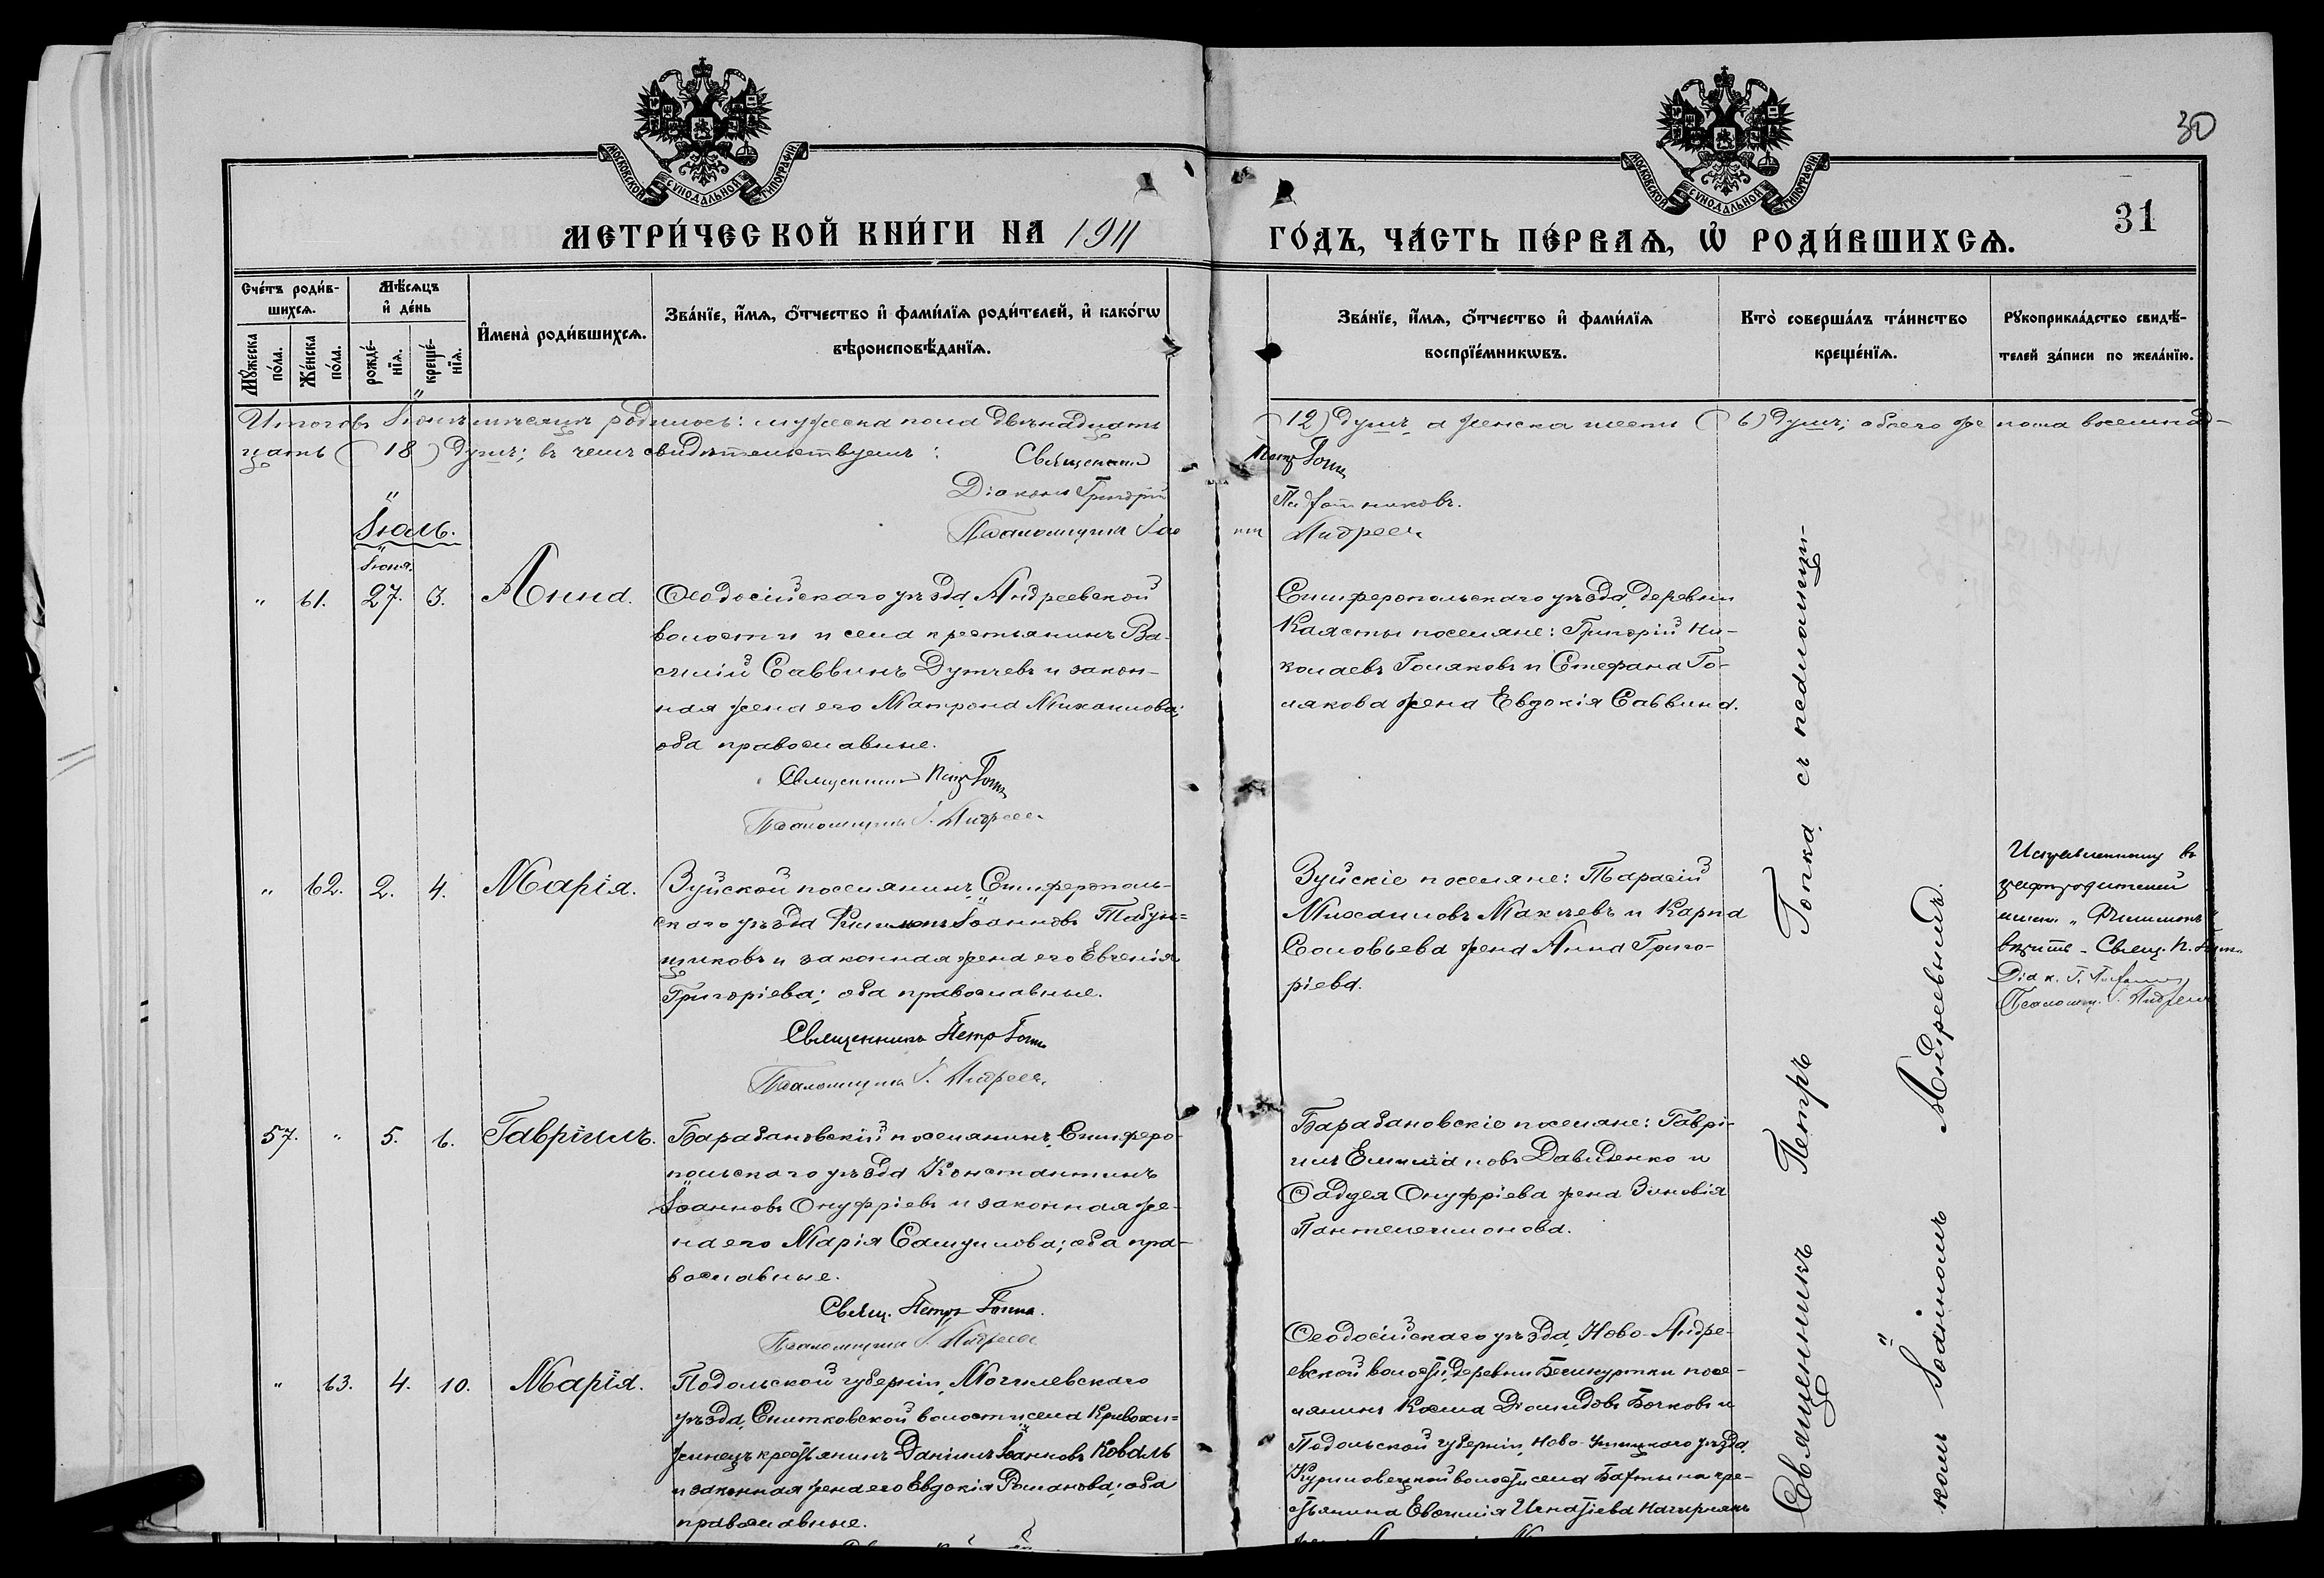 30
МОСКОВСКОЙ СУНОДАЛЬНОЙ ТИПОГРАФІИ
МОСКОВСКОЙ СУНОДАЛЬНОЙ ТИПОГРАФІИ
31
МЕТРИ́ЧЕСКОЙ КНИ́ГИ НА 1911
ГО́ДЪ, ЧА́СТЬ ПЕ́РВАѦ, Ѡ҆ РОДИ́ВШИХСѦ.
Сче́тъ роди́в-
шихсѧ.
Мꙋ́жеска по́ла.
Же́нска по́ла.
Мѣ́сѧцъ
и҆ де́нь
рожде́-
нїѧ.
креще́-
нїѧ.
И҆мена̀ роди́вшихсѧ.
Зва́нїе, и҆́мѧ, ѻ҆́тчество и҆ фами́лїѧ роди́телей, и҆ како́гѡ
вѣроисповѣ́данїѧ.
Зва́нїе, и҆́мѧ, ѻ҆́тчество и҆ фами́лїѧ
воспрїе́мникѡвъ.
Кто̀ соверша́лъ та́инство
креще́нїѧ.
Рꙋкоприкла́дство свидѣ́-
телей за́писи по жела́нїю.
Итого въ Іюнѣ мѣсяцѣ родилось: мужеска пола двѣнадцать
(12) душъ, а женска шесть (6) душъ; обоего же пола восемнад-
цать (18) душъ; въ чемъ свидѣтельствуемъ: Священникъ
Петръ
Діаконъ Григорій
Псаломщикъ Іоа
нъ Андреевъ
Іюль.
Іюня.
" 61. 27. 3. Анна.
Ѳеодосійскаго уѣзда, Андреевской
волости и села крестьянинъ Ва-
силій Саввинъ Дутчевъ и закон-
ная жена его Матрона Михаилова;
оба православные.
Священникъ Петръ
Псаломщикъ І. Андреевъ
Симферопольскаго уѣзда, деревни
Каясты поселяне: Григорій Ни-
колаевъ Голяковъ и Стефана Го-
лякова жена Евдокія Саввина.
" 62. 2. 4. Марія.
Зуйской поселянинъ, Симферополь-
скаго уѣзда Филимонъ Іоанновъ Табун-
щиковъ и законная жена его Евгенія
Григоріева; оба православные.
Священникъ Петръ
Псаломщикъ І. Андреевъ
Зуйскіе поселяне: Тарасій
Михаиловъ Макѣевъ и Карпа
Соловьева жена Анна Григо-
ріева.
Исправленному въ
графѣ родителей
"Филимонъ"
вѣрить - Свящ. П.
Діак. Г.
Псаломщ. І. Андреевъ
57. " 5. 6. Гавріилъ.
Барабановскій поселянинъ, Симферо-
польскаго уѣзда Константинъ
Іоанновъ Онуфріевъ и законная же-
на его Марія Самуилова; оба пра-
вославные.
Свящ. Петръ
Псаломщикъ І. Андреевъ
Барабановскіе поселяне: Гаврі-
илъ Емиліановъ Давиденко и
Ѳаддея Онуфріева жена Зиновія
Пантелеимонова.
" 63. 4. 10. Марія.
Подольской губерніи, Могилевскаго
уѣзда, Снитковской волости, села Кривохи-
жинецъ крестьянинъ Даніилъ Іоанновъ Коваль
и законная жена его Евдокія Романова; оба
православные.
Ѳеодосійскаго уѣзда, Ново-Андре-
евской волости, деревни Бешкуртки посе-
лянинъ Косма Діомидовъ Бочковъ и
Подольской губерніи, Ново-Ушицкаго уѣзда,
Куриловецкой волости села Бахтына кре-
стьянина Евѳимія Игнатіева Нагирнякъ
Священникъ Петръ Гопка, съ псаломщи-
комъ Іоанномъ Андреевымъ.